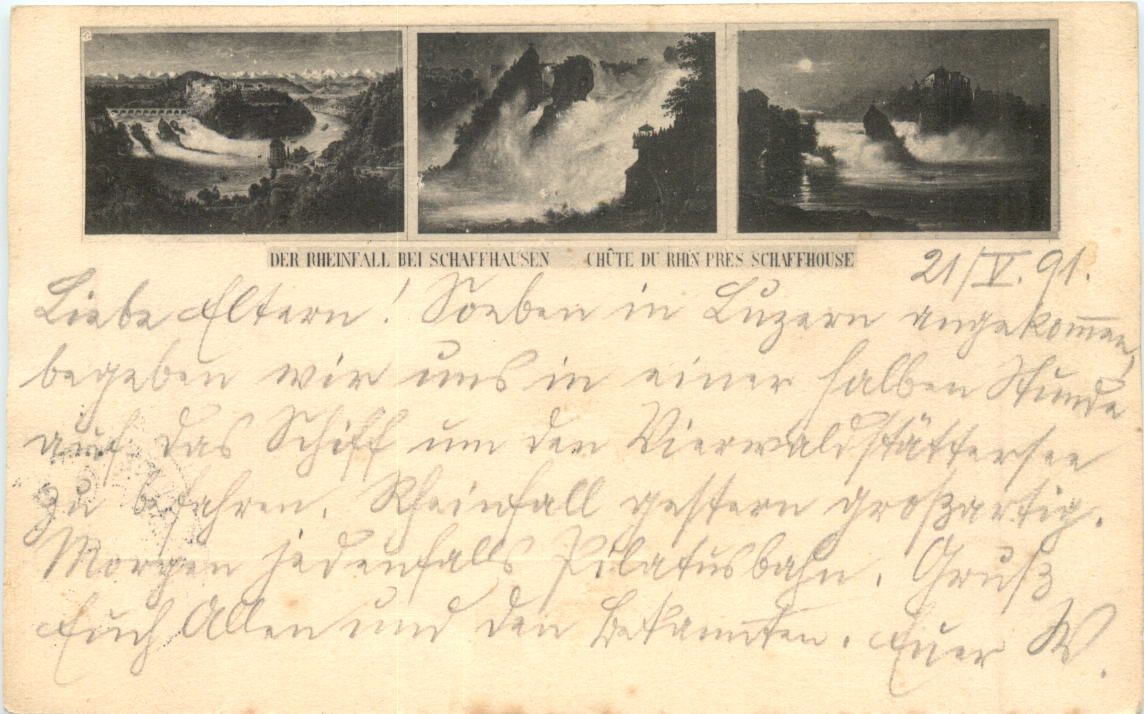 DER RHEINFALL BEI SCHAFFHAUSEN CHÛTE DU RHIN PRES SCHAFFHOUSE
21/V. 91.
Liebe Eltern! Soeben in Luzern angekommen,
begeben wir uns in einer halben Stunde
auf das Schiff um den Vierwaldstättersee
zu befahren. Rheinfall gestern großartig.
Morgen jedenfalls Pilatusbahn. Gruß
Euch Allen und den Bekannten. Euer W.